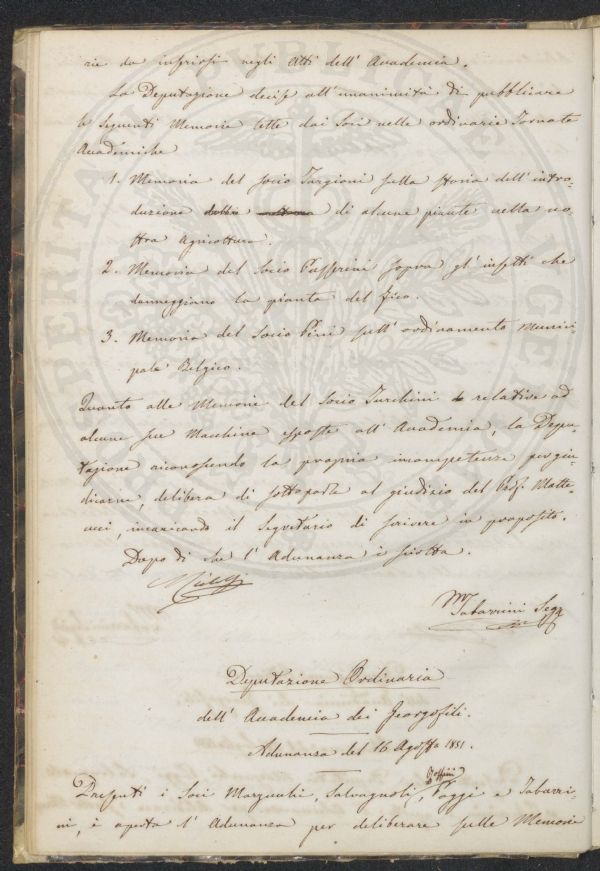 rie da inserirsi negli Atti dell' Accademia.
La Deputazione decise all' unanimità di pubblicare
le seguenti Memorie lette dai Soci nelle ordinarie Tornate
Accademiche
1. Memoria del socio Targioni sulla storia dell' intro-
duzione di alcune piante nella no-
stra Agricoltura.
2. Memoria del Socio Passerini sopra gl' insetti che
danneggiano la pianta del fico.
3. Memoria del Socio Pini sull' ordinamento Munici-
pale Belgico.
Quanto alle Memorie del Socio Turchini relative ad
alcune sue Macchine esposte all' Accademia, la Depu-
tazione riconoscendo la propria incompetenza per giu-
dicarne, delibera di sottoporle al giudizio del Prof. Matte-
ucci, incaricando il Segretario di scrivere in proposito.
Dopo di che l' Adunanza è sciolta.
M Tabarrini Segr
Deputazione Ordinaria
dell' Accademia dei Georgofili.
Adunanza del 16 Agosto 1851.
Presenti i Soci Marzucchi, Salvagnoli, Poggi e Tabarri-
ni, è aperta l' Adunanza per deliberare sulle Memorie